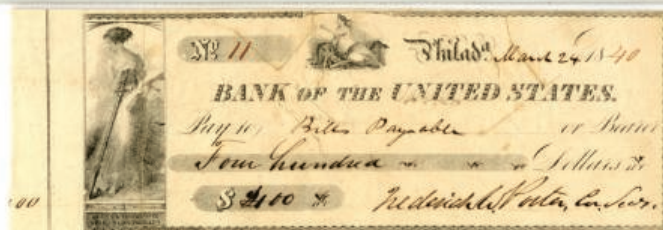 No 11 Philada. March 24 1840
BANK OF THE UNITED STATES.
Pay to, Bills Payable or Bearer
Four hundred Dollars
$ 400
Frederick W. Porter, Cor. Secy.